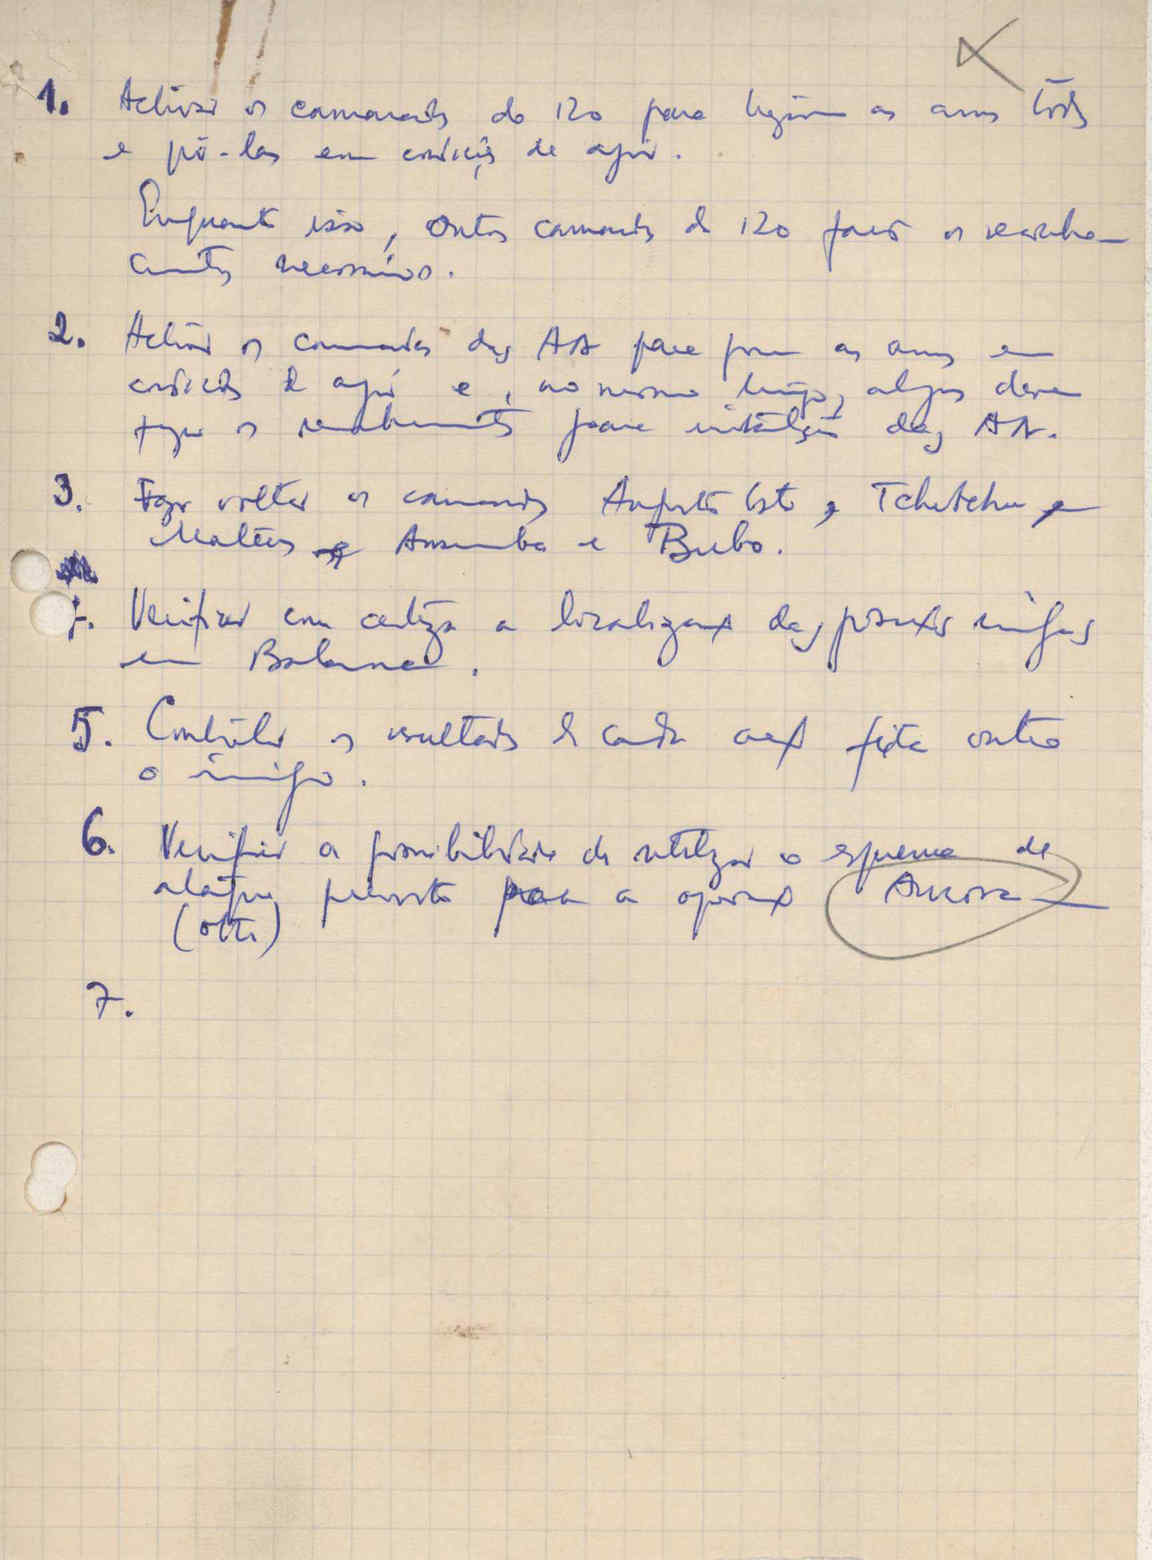 1. Activar os camaradas do 120 para as armas tôdas
e pô-las em condições de agir.
Enquanto isso, outros camaradas do 120 fazer os reconhe-
cimentos necessários.
2. Activar os camaradas das AA para pôr as armas em
condições de agir e, ao mesmo tempo, alguns devem
fazer os reconhecimentos para instalação das AA.
3. Fazer voltar os camaradas Augusto Costa, Tchutchu,
Mateus, e Bubo.
4. Verificar com certeza a localização das posições inimigas
em Balana.
5. Contrôlar os resultados de cada acção feita contra
o inimigo.
6. Verificar a possibilidade de utilizar o esquema de
ataque previsto para a operação
7.